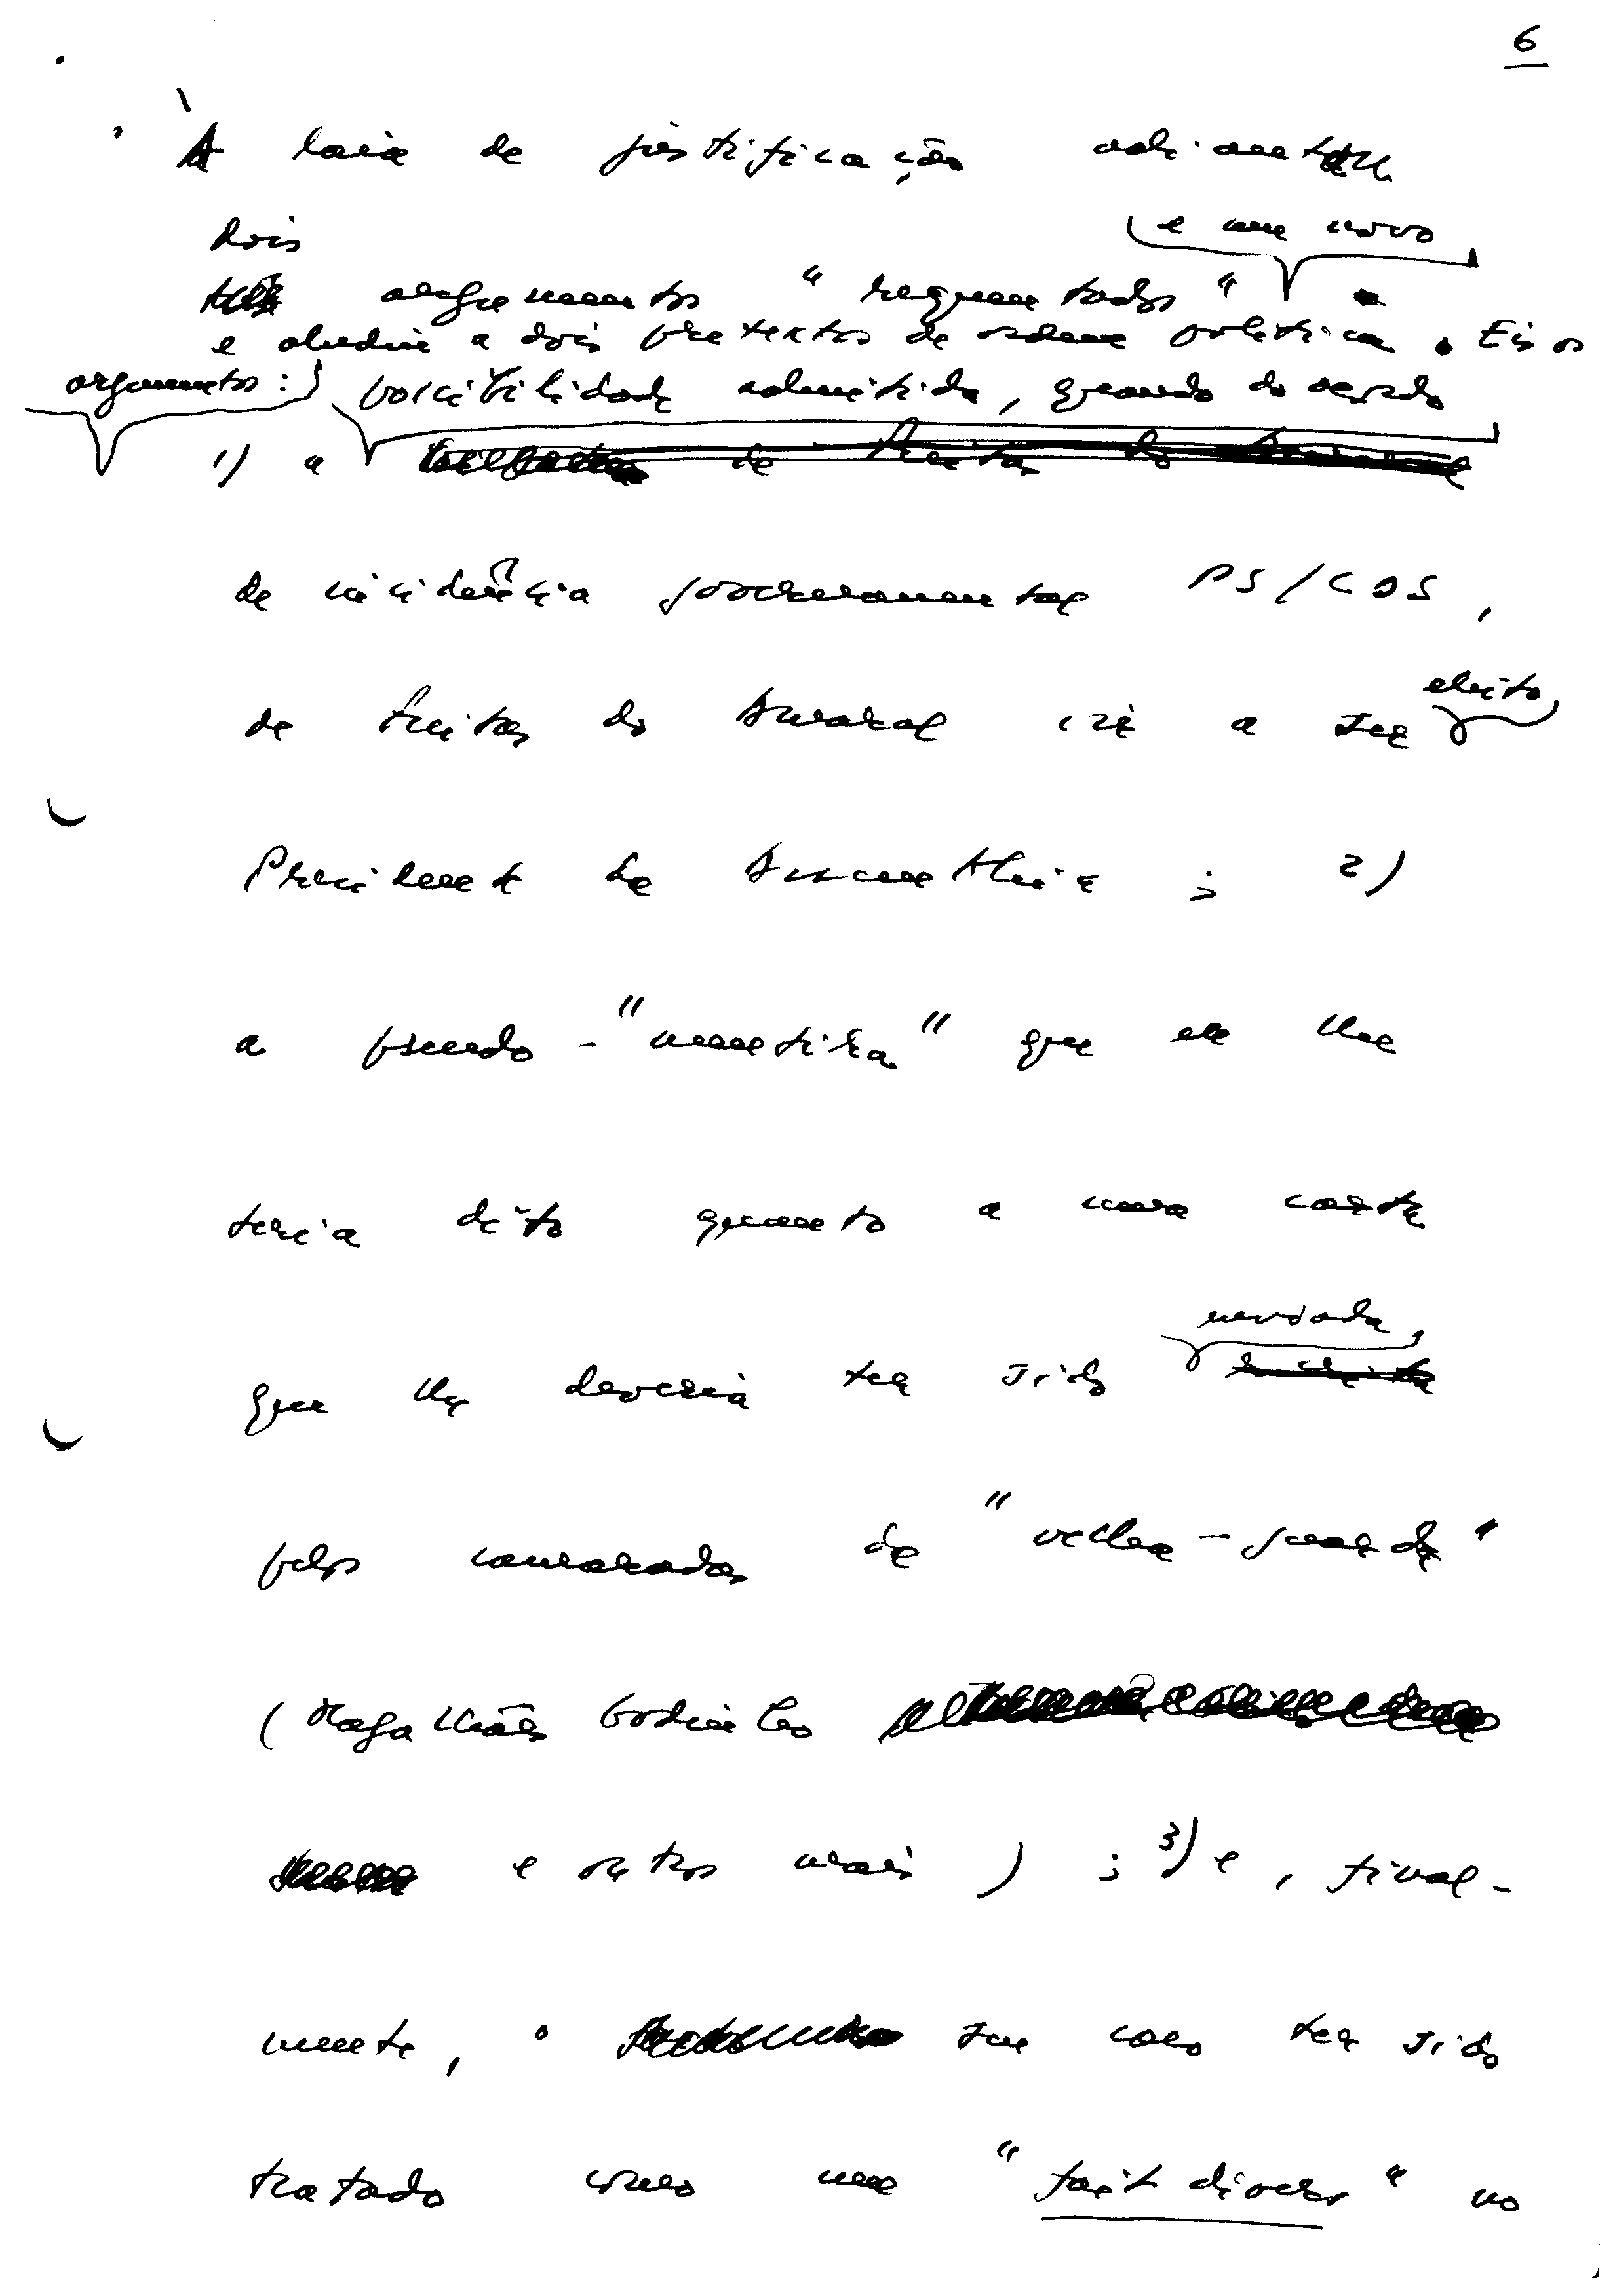 6
À laia de justificação adiantou
dois e um novo
três argumentos "requentados"
e aludiu a dois pretextos de ordem política. Eis os
argumentos: possibilidade admitida, quando do acordo
1) a de Freitas do Amaral
de incidência parlamentar PS/CDS,
de Freitas do Amaral vir a ser eleito
Presidente da Assembleia; 2)
a pseudo-"mentira" que eu lhe
teria dito quanto a uma carta
que lhe deveria ter sido enviada
pelos camaradas de "velha-guarda"
(Magalhães Godinho
e outros mais); 3) e, final-
mente, o seu caso ter sido
tratado como um "fait divers" no